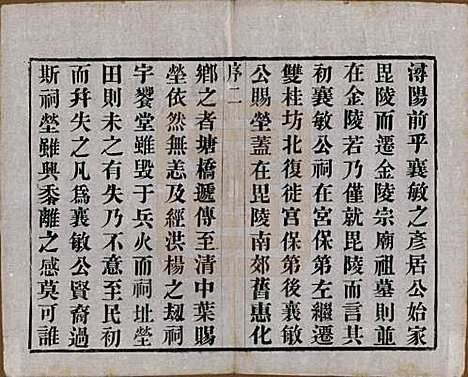 潯陽前乎襄敏之彥居公始家
毘陵而遷金陵宗廟祖墓則並
在金陵若乃僅就毘陵而言
初襄敏公祠在宮保第左繼遷
雙桂坊北復徙宮保第後襄敏
公賜塋蓋在毘陵南郊舊惠化
序二
鄉之耆塘橋遞傳至清中葉賜
塋依然無恙及經洪楊之刼祠
宇饗堂雖毀于兵火而祠址塋
田則未之有失乃不意至民初
而并失之凡為襄敏公賢裔過
斯祠塋雖興黍離之感莫可誰